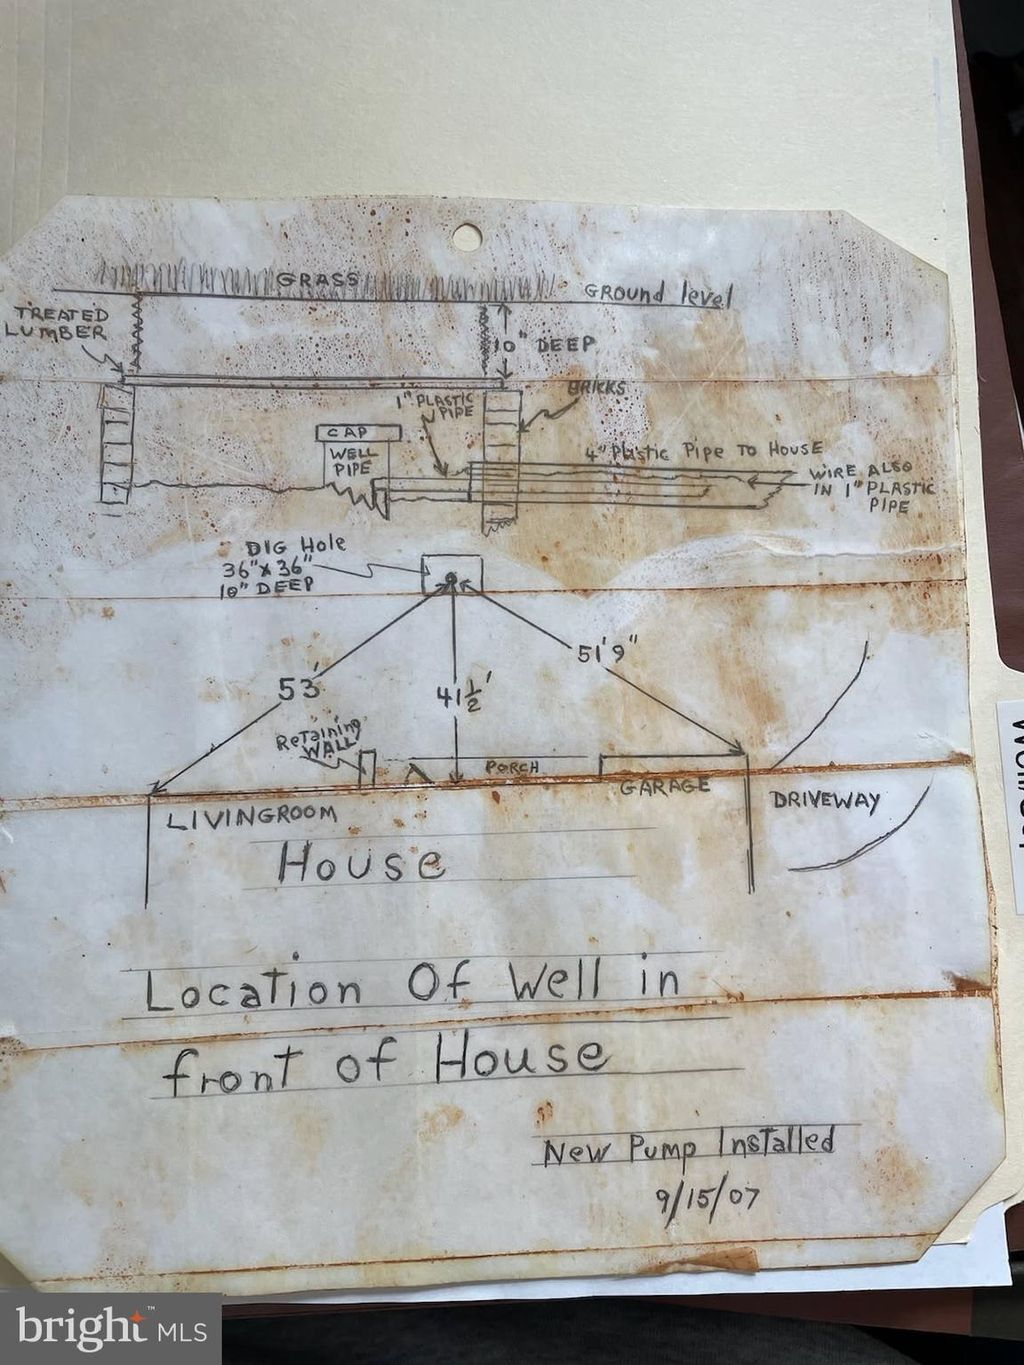 GRASS
GROUND level
TREATED
LUMBER
10" DEEP
BRICKS
1" PLASTIC
PIPE
CAP
WELL
PIPE
4" Plastic Pipe TO HOUSE
WIRE ALSO
IN 1" PLASTIC
PIPE
DIG Hole
36" x 36"
10" DEEP
53'
41½'
51'9"
ReTaining
WALL
PORCH
GARAGE
LIVINGROOM
DRIVEWAY
House
Location Of Well in
front of House
New Pump Installed
9/15/07
bright™ MLS